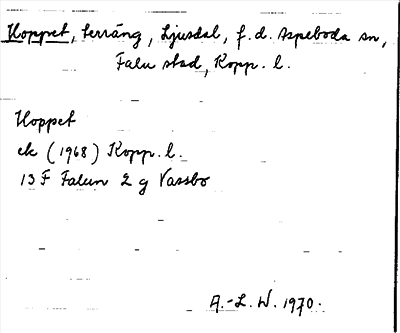 Hoppet, terräng, Ljusdal, f. d. Aspeboda sn,
Falu stad, Kopp. l.
Hoppet
ek (1968) Kopp. l.
13 F Falun 2 g Vassbo
A.-L. W. 1970.